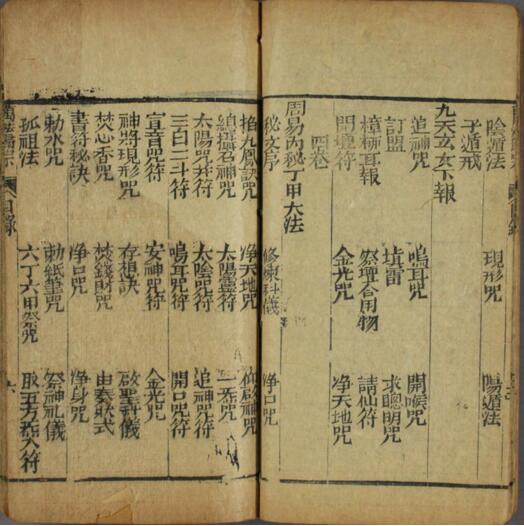 陰遁法　現形咒　陽遁法
子遁戒
九天玄女下報
追神咒　鳴耳咒　開喉咒
訂盟　填雷　求聰明咒
樟柳耳報　祭壇合用物　請仙符
開壇符　金光咒　净天地咒
四卷
周易內秘丁甲大法
秘文序　修煉科儀　净口咒
掐九鳳訣咒　净天地咒　仰啟神咒
總攝召神咒　太陽靈符　一炁咒
太陽咒并符　太陰咒符　追神咒符
三百二斗符　鳴耳咒符　開口咒符
宣音咒符　安神咒符　金光咒
神將現形咒　存想訣　啟聖科儀
焚心香咒　焚錢財咒　由奏欵式
書符秘訣　净口咒　净身咒
勅水咒　勅紙筆咒　祭神礼儀
孤祖法　六丁六甲祭咒　取五方炁入符
萬法歸宗　目錄　六